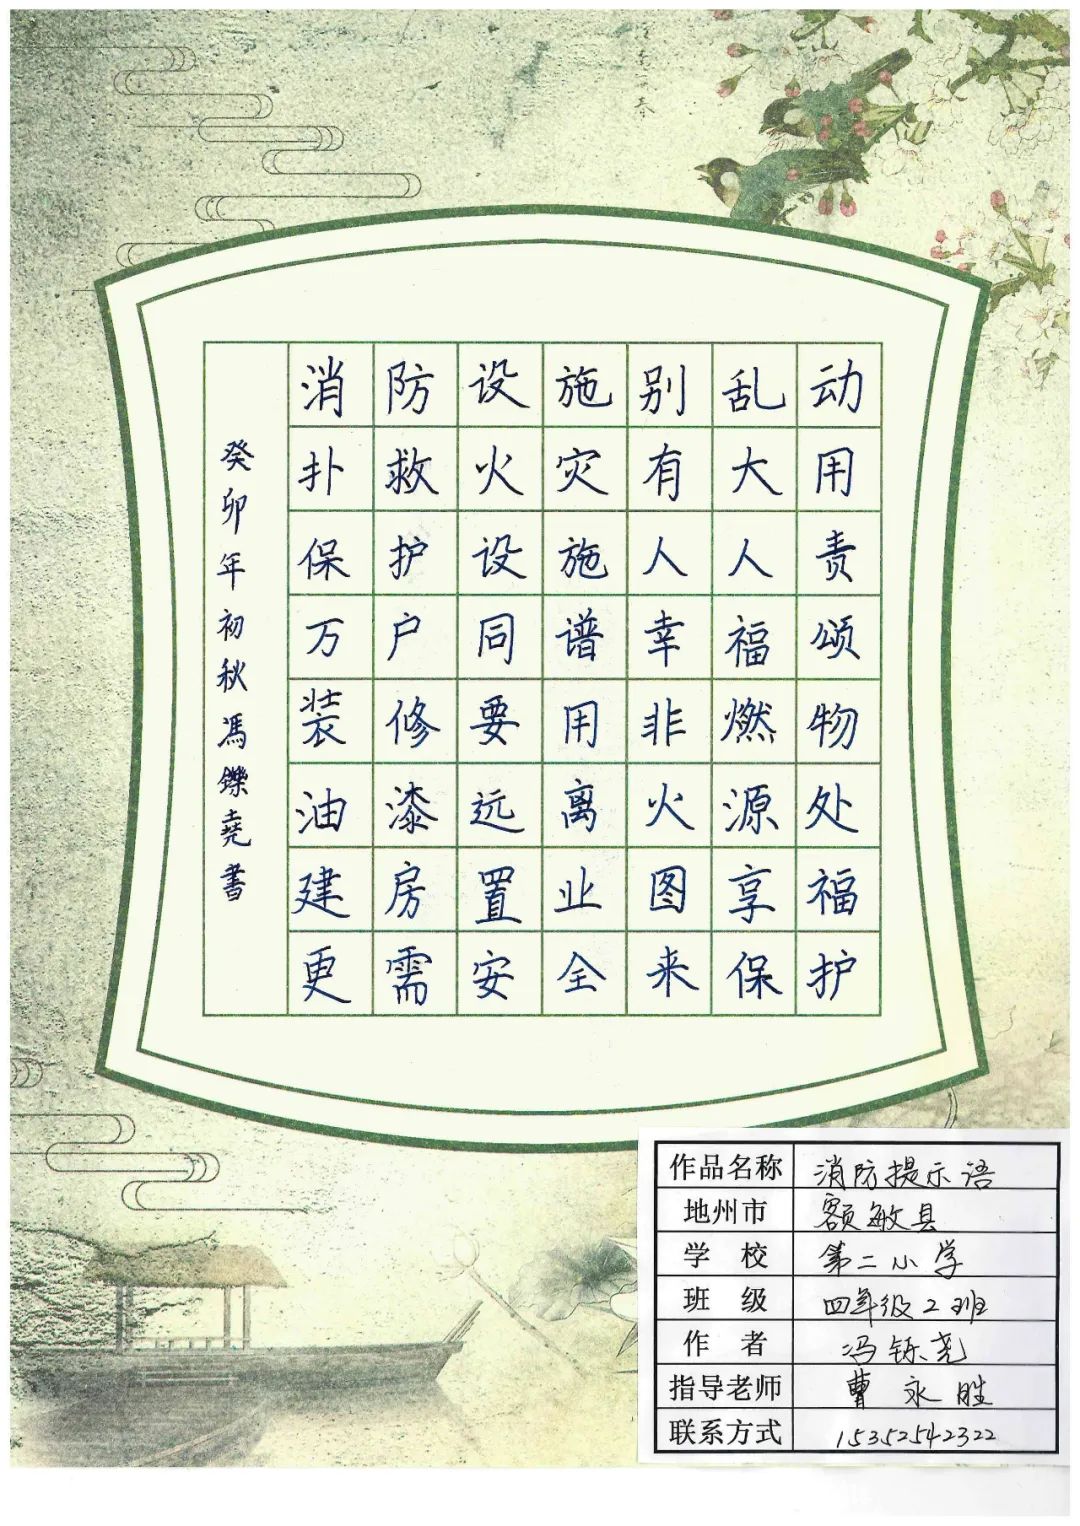 消防设施别乱动
扑救火灾有大用
保护设施人人责
万户同谱幸福颂
装修要用非燃物
油漆远离火源处
建房置业图享福
更需安全来保护
癸卯年初秋馮鑠堯書
作品名称 消防提示语
地州市 额敏县
学校 第二小学
班级 四年级2班
作者 冯铄尧
指导老师 曹永胜
联系方式 15352542322